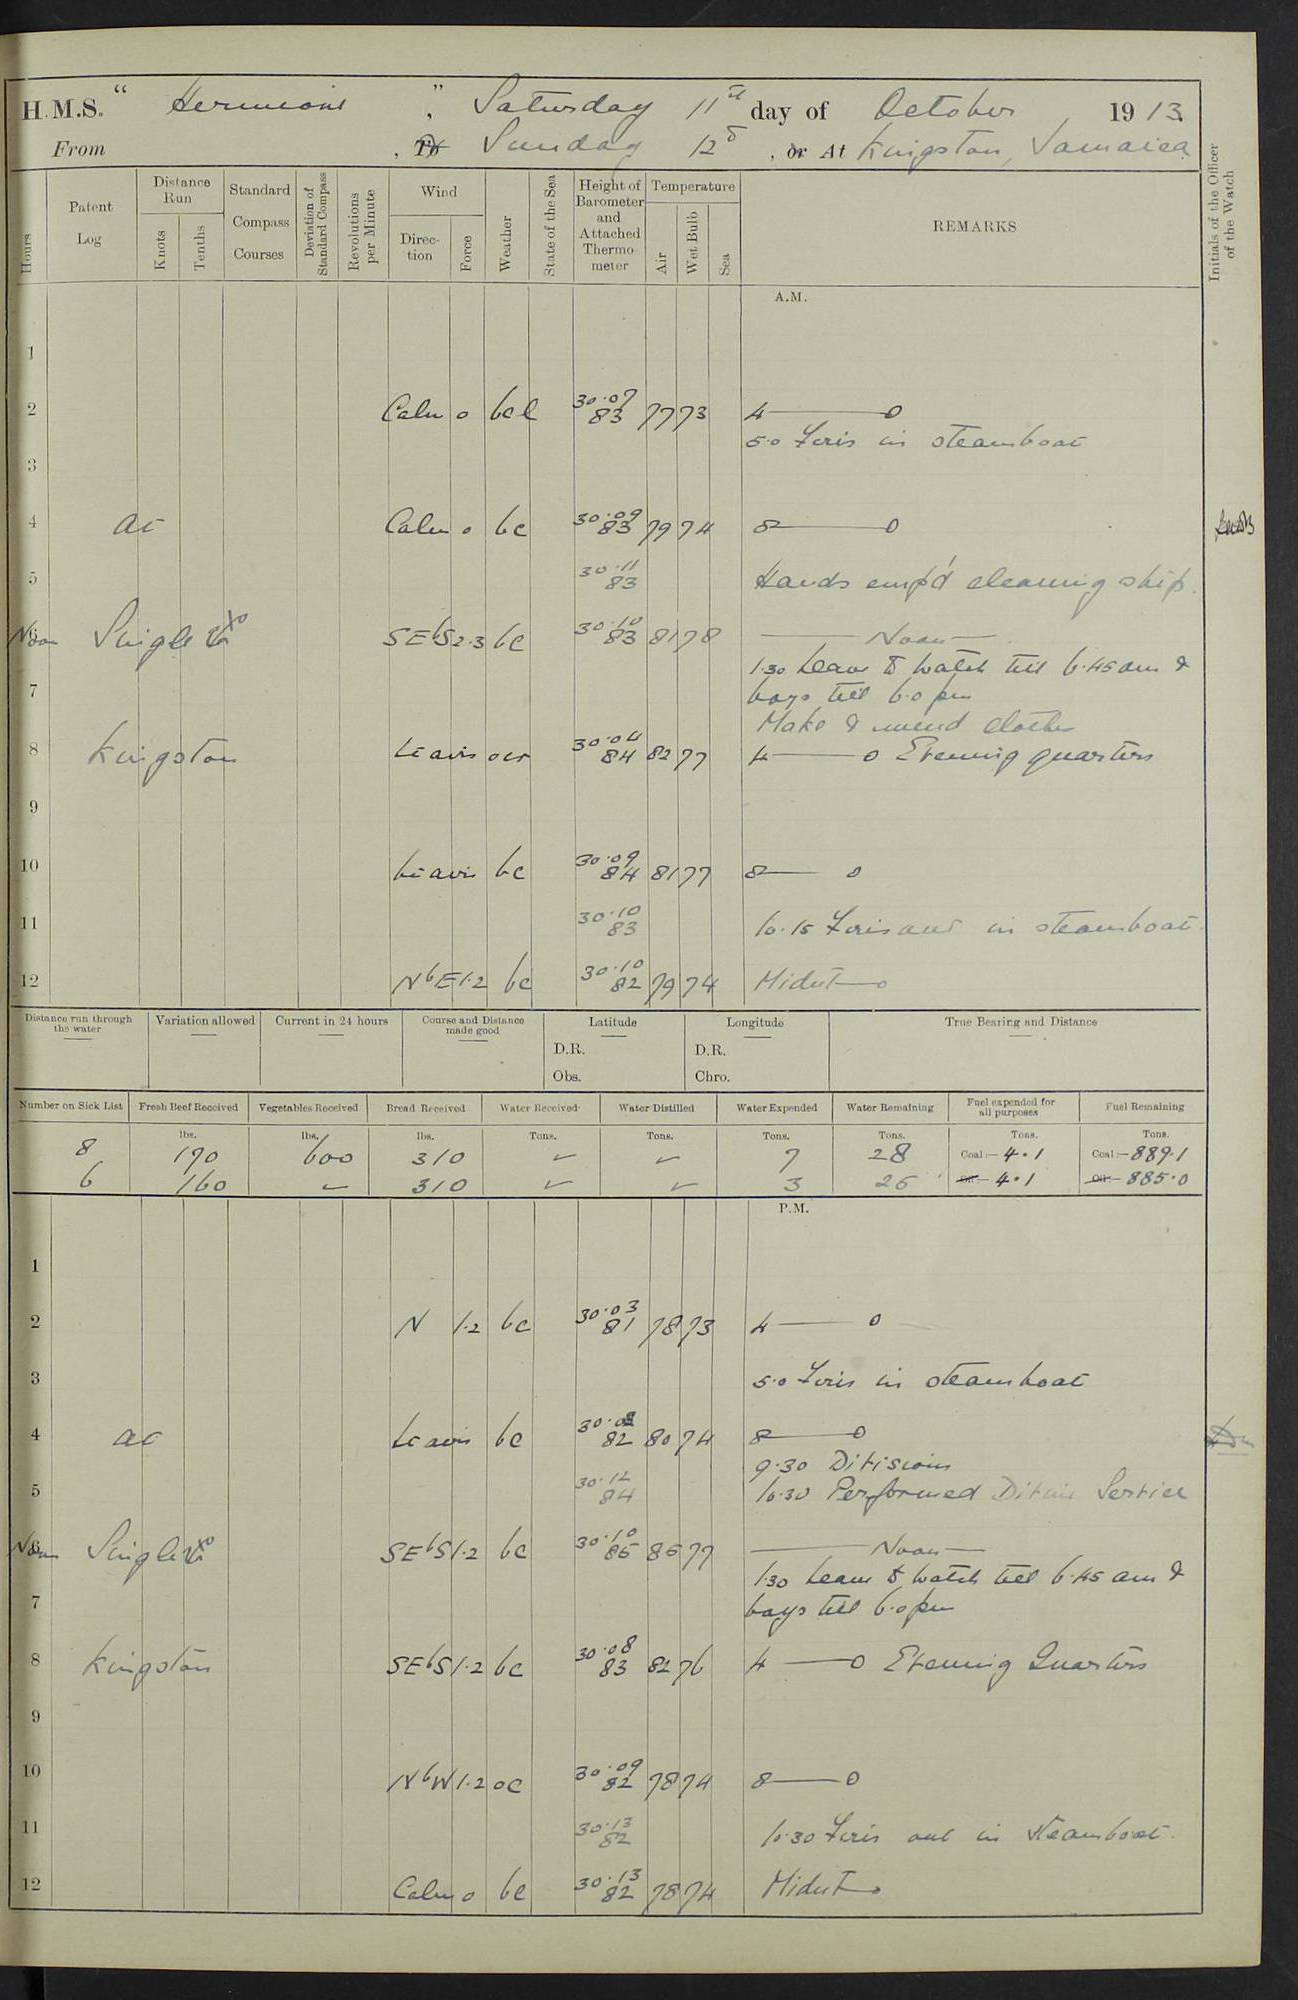 H.M.S. " Hermione ", Saturday 11th day of October 1913
From , To Sunday 12th , or At Kingston, Jamaica
Hours
Patent Log
Distance Run
Knots
Tenths
Standard Compass Courses
Deviation of Standard Compass
Revolutions per Minute
Wind
Direction
Force
Weather
State of the Sea
Height of Barometer and Attached Thermometer
Temperature
Air
Wet Bulb
Sea
REMARKS
Initials of the Officer of the Watch
A.M.
1
2 Calm 0 bcl 30.07 83 77 73 4 ——— 0
5.0 in steamboat
3
4 at Calm 0 bc 30.09 83 79 74 8 ——— 0
5 30.11 83 Hands emp'd cleaning ship.
Noon 6 Single SEbS 2.3 bc 30.10 83 81 78 — Noon —
1.30 Leave to watch till 6.45 am &
7 boys till 6.0 pm
Make & mend clothes
8 Kingston Lt airs 30.04 84 82 77 4 ——— 0 Evening quarters
9
10 Lt airs bc 30.09 84 81 77 8 —— 0
11 30.10 83 10.15 in steamboat.
12 NbE 1.2 bc 30.10 82 79 74 Midnt — 0
Distance run through the water
Variation allowed
Current in 24 hours
Course and Distance made good
Latitude
Longitude
True Bearing and Distance
D.R. D.R.
Obs. Chro.
Number on Sick List
Fresh Beef Received
Vegetables Received
Bread Received
Water Received
Water Distilled
Water Expended
Water Remaining
Fuel expended for all purposes
Fuel Remaining
lbs. lbs. lbs. Tons. Tons. Tons. Tons. Tons. Tons.
8 170 600 310 ✓ ✓ 7 28 Coal:— 4.1 Coal:— 889.1
6 160 ✓ 310 ✓ ✓ 3 25 Oil:— 4.1 Oil:— 885.0
P.M.
1
2 N 1.2 bc 30.03 81 78 73 4 —— 0
3 5.0 in steamboat
4 at Lt airs bc 82 80 74 8 —— 0
9.30 Divisions
5 30.12 84 10.30 Performed Divine Service
Noon 6 Single SEbS 1.2 bc 30.10 77 — Noon —
1.30 Leave to watch till 6.45 am &
7 boys till 6.0 pm
8 Kingston SEbS 1.2 bc 30.08 83 82 76 4 —— 0 Evening Quarters
9
10 NbW 1.2 oc 30.09 82 78 74 8 —— 0
11 30.13 82 10.30 out in steamboat.
12 Calm 0 bc 30.13 82 78 74 Midnt — 0